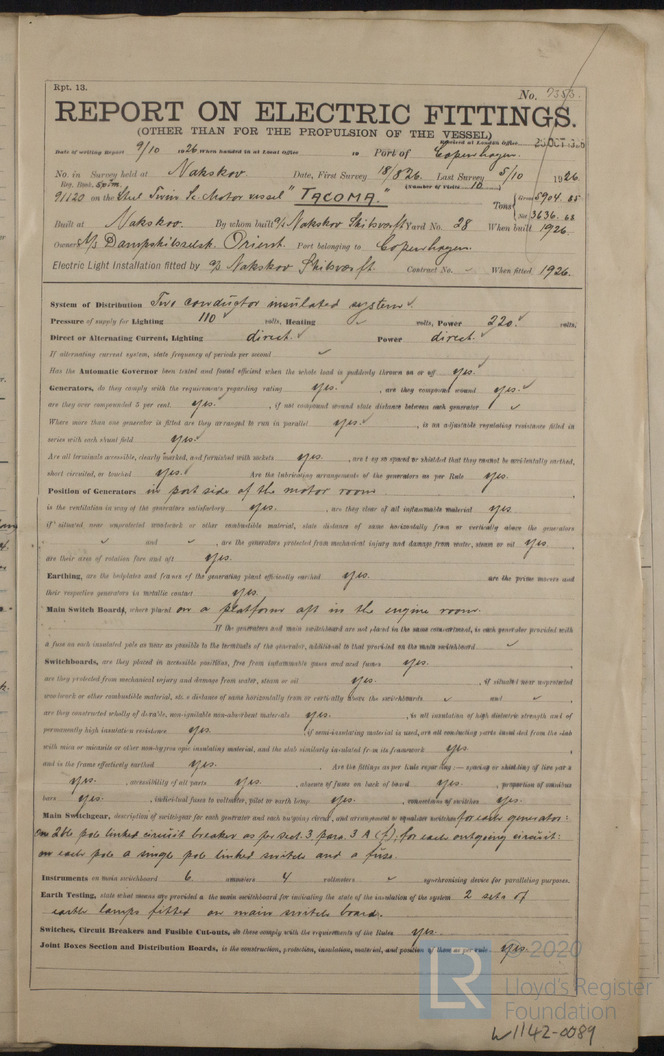 Rpt. 13.
No. 7355.
REPORT ON ELECTRIC FITTINGS.
(OTHER THAN FOR THE PROPULSION OF THE VESSEL)
Received at London Office
Date of writing Report 9/10 1926 When handed in at Local Office 19 Port of Copenhagen.
No. in Survey held at Nakskov Date, First Survey 18/8 26. Last Survey 5/10 1926
Reg. Book. (Number of Visits 10)
91120 on the Steel Twin Sc Motor vessel "TACOMA." Tons Gross 5904.85
Net 3636.68
Built at Nakskov By whom built A/S Nakskov Skibsværft Yard No. 28 When built 1926.
Owners A/S Dampskibsselsk. Orient. Port belonging to Copenhagen
Electric Light Installation fitted by A/S Nakskov Skibsværft. Contract No. When fitted 1926.
System of Distribution Two conductor insulated system
Pressure of supply for Lighting 110 volts, Heating volts, Power 220. volts,
Direct or Alternating Current, Lighting direct. Power direct.
If alternating current system, state frequency of periods per second
Has the Automatic Governor been tested and found efficient when the whole load is suddenly thrown on or off yes.
Generators, do they comply with the requirements regarding rating yes. , are they compound wound yes.
are they over compounded 5 per cent. yes. , if not compound wound state distance between each generator
Where more than one generator is fitted are they arranged to run in parallel yes. , is an adjustable regulating resistance fitted in
series with each shunt field yes.
Are all terminals accessible, clearly marked, and furnished with sockets yes. , are they so spaced or shielded that they cannot be accidentally earthed,
short circuited, or touched yes. Are the lubricating arrangements of the generators as per Rule yes.
Position of Generators in port side of the motor room
is the ventilation in way of the generators satisfactory yes. , are they clear of all inflammable material yes.
if situated near unprotected woodwork or other combustible material, state distance of same horizontally from or vertically above the generators
and , are the generators protected from mechanical injury and damage from water, steam or oil yes.
are their axes of rotation fore and aft yes.
Earthing, are the bedplates and frames of the generating plant efficiently earthed yes. are the prime movers and
their respective generators in metallic contact yes.
Main Switch Boards, where placed on a platform aft in the engine room.
If the generators and main switchboard are not placed in the same compartment, is each generator provided with
a fuse on each insulated pole as near as possible to the terminals of the generator, additional to that provided on the main switchboard
Switchboards, are they placed in accessible positions, free from inflammable gases and acid fumes yes.
are they protected from mechanical injury and damage from water, steam or oil yes. , if situated near unprotected
woodwork or other combustible material, state distance of same horizontally from or vertically above the switchboards and
are they constructed wholly of durable, non-ignitable non-absorbent materials yes. , is all insulation of high dielectric strength and of
permanently high insulation resistance yes. , if semi-insulating material is used, are all conducting parts insulated from the slab
with mica or micanite or other non-hygroscopic insulating material, and the slab similarly insulated from its framework yes.
and is the frame effectively earthed yes. Are the fittings as per Rule regarding :— spacing or shielding of live parts
yes. , accessibility of all parts yes. , absence of fuses on back of board yes. , proportion of omnibus
bars yes. , individual fuses to voltmeter, pilot or earth lamp yes. , connections of switches yes.
Main Switchgear, description of switchgear for each generator and each outgoing circuit, and arrangement of equaliser switches for each generator:
one dble pole linked circuit breaker as per sect. 3 para. 3 A (f); for each outgoing circuit:
on each pole a single pole linked switch and a fuse.
Instruments on main switchboard 6 ammeters 4 voltmeters synchronising device for paralleling purposes.
Earth Testing, state what means are provided at the main switchboard for indicating the state of the insulation of the system 2 sets of
earth lamps fitted on main switch board.
Switches, Circuit Breakers and Fusible Cut-outs, do these comply with the requirements of the Rules yes.
Joint Boxes Section and Distribution Boards, is the construction, protection, insulation, material, and position of them as per rule yes.
© 2020
LR
Lloyd's Register
Foundation
W1142-0089